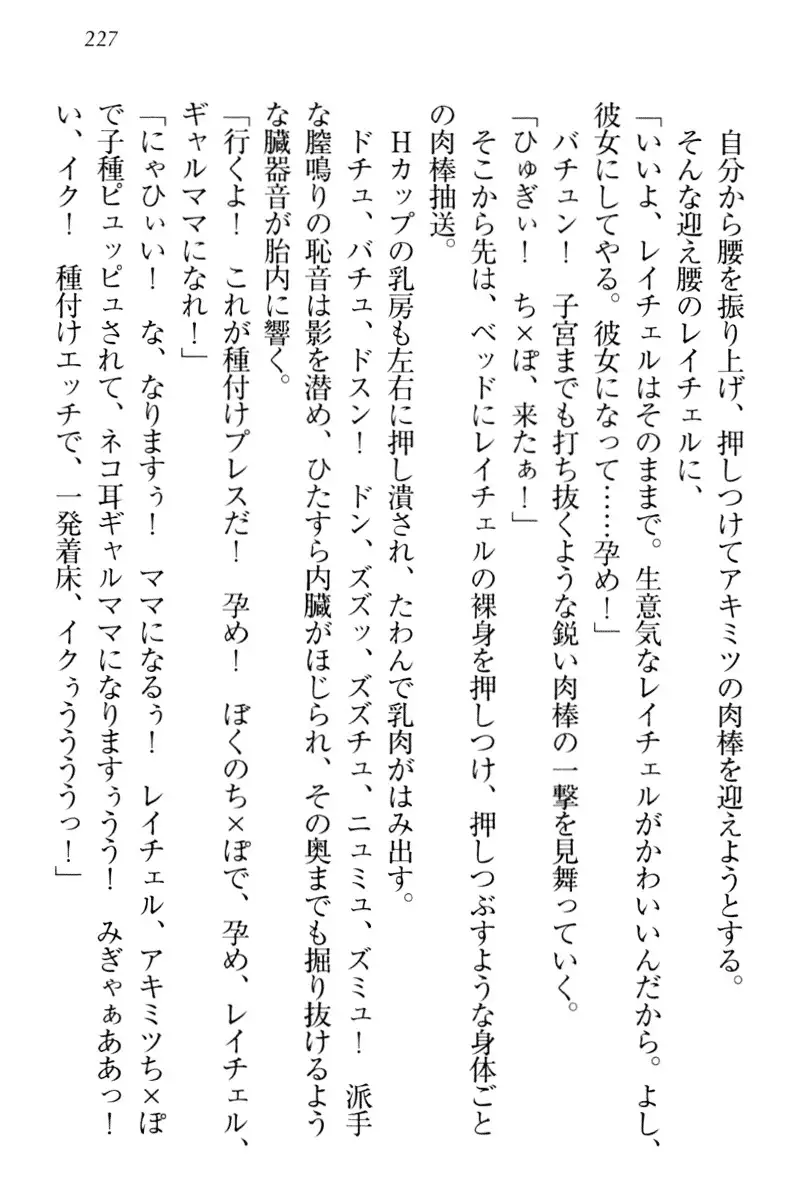 227
自分から腰を振り上げ、押しつけてアキミツの肉棒を迎えようとする。
そんな迎え腰のレイチェルに、
「いいよ、レイチェルはそのままで。生意気なレイチェルがかわいいんだから。よし、
彼女にしてやる。彼女になって……孕め！」
バチュン！　子宮までも打ち抜くような鋭い肉棒の一撃を見舞っていく。
「ひゅぎぃ！　ち×ぽ、来たぁ！」
そこから先は、ベッドにレイチェルの裸身を押しつけ、押しつぶすような身体ごと
の肉棒抽送。
Ｈカップの乳房も左右に押し潰され、たわんで乳肉がはみ出す。
ドチュ、バチュ、ドスン！　ドン、ズズッ、ズズチュ、ニュミュ、ズミュ！　派手
な膣鳴りの恥音は影を潜め、ひたすら内臓がほじられ、その奥までも掘り抜けるよう
な臓器音が胎内に響く。
「行くよ！　これが種付けプレスだ！　孕め！　ぼくのち×ぽで、孕め、レイチェル、
ギャルママになれ！」
「にゃひぃい！　な、なりますぅ！　ママになるぅ！　レイチェル、アキミツち×ぽ
で子種ピュッピュされて、ネコ耳ギャルママになりますぅうう！　みぎゃぁああっ！
い、イク！　種付けエッチで、一発着床、イクぅうううっ！」